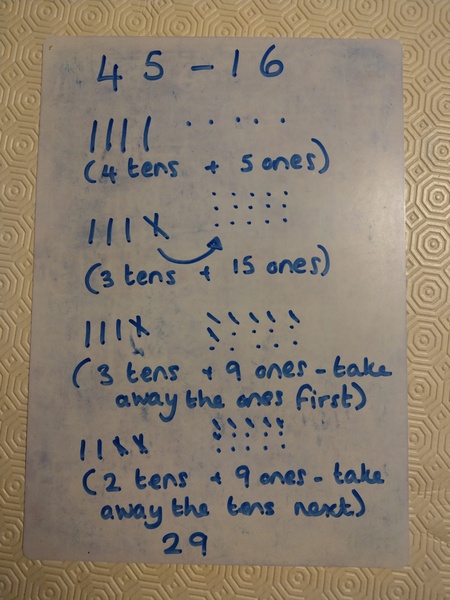 45 - 16
(4 tens + 5 ones)
(3 tens + 15 ones)
(3 tens + 9 ones - take
away the ones first)
(2 tens + 9 ones - take
away the tens next)
29